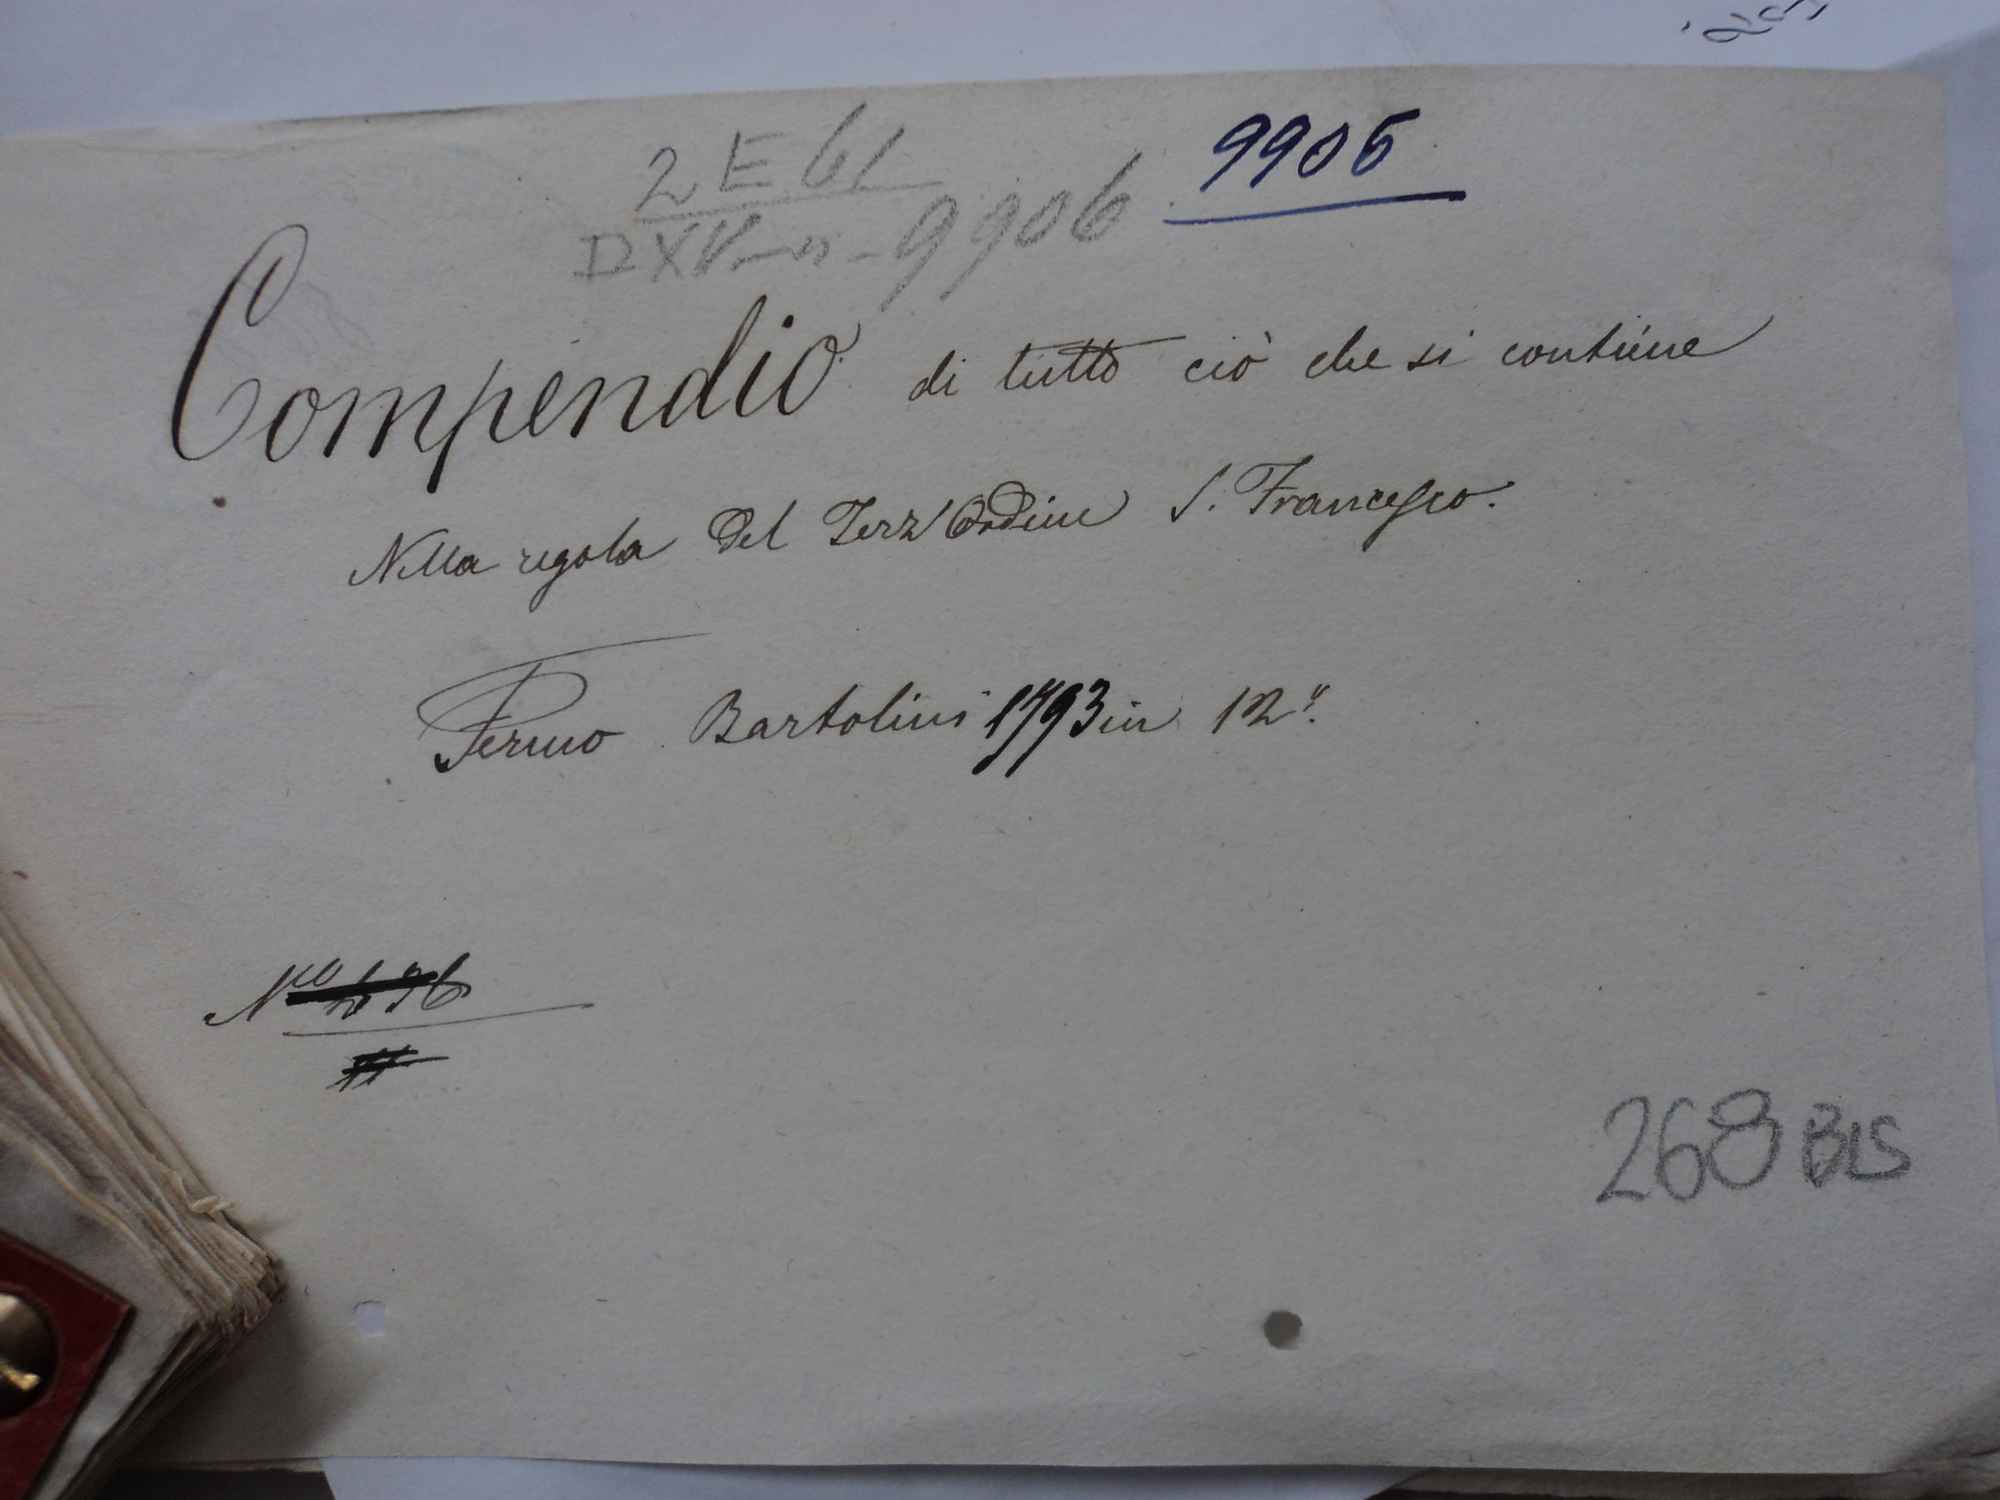 2 E 61
9906
9906
Compendio di tutto ciò che si contiene
Nella regola del Terz'Ordine S. Francesco.
Fermo Bartolini 1793 in 12º.
Nro
268 BIS